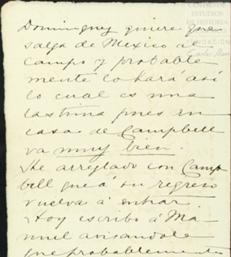 Dominguez quiere que
salga de Mexico al
campo y probable
mente lo hará así
lo cual es una
lastima pues en
casa de Campbell
va muy bien.
He arreglado con Camp
bell que á su regreso
vuelva á entrar.
Hoy escribo á Ma
nuel avisandole
que probablemente